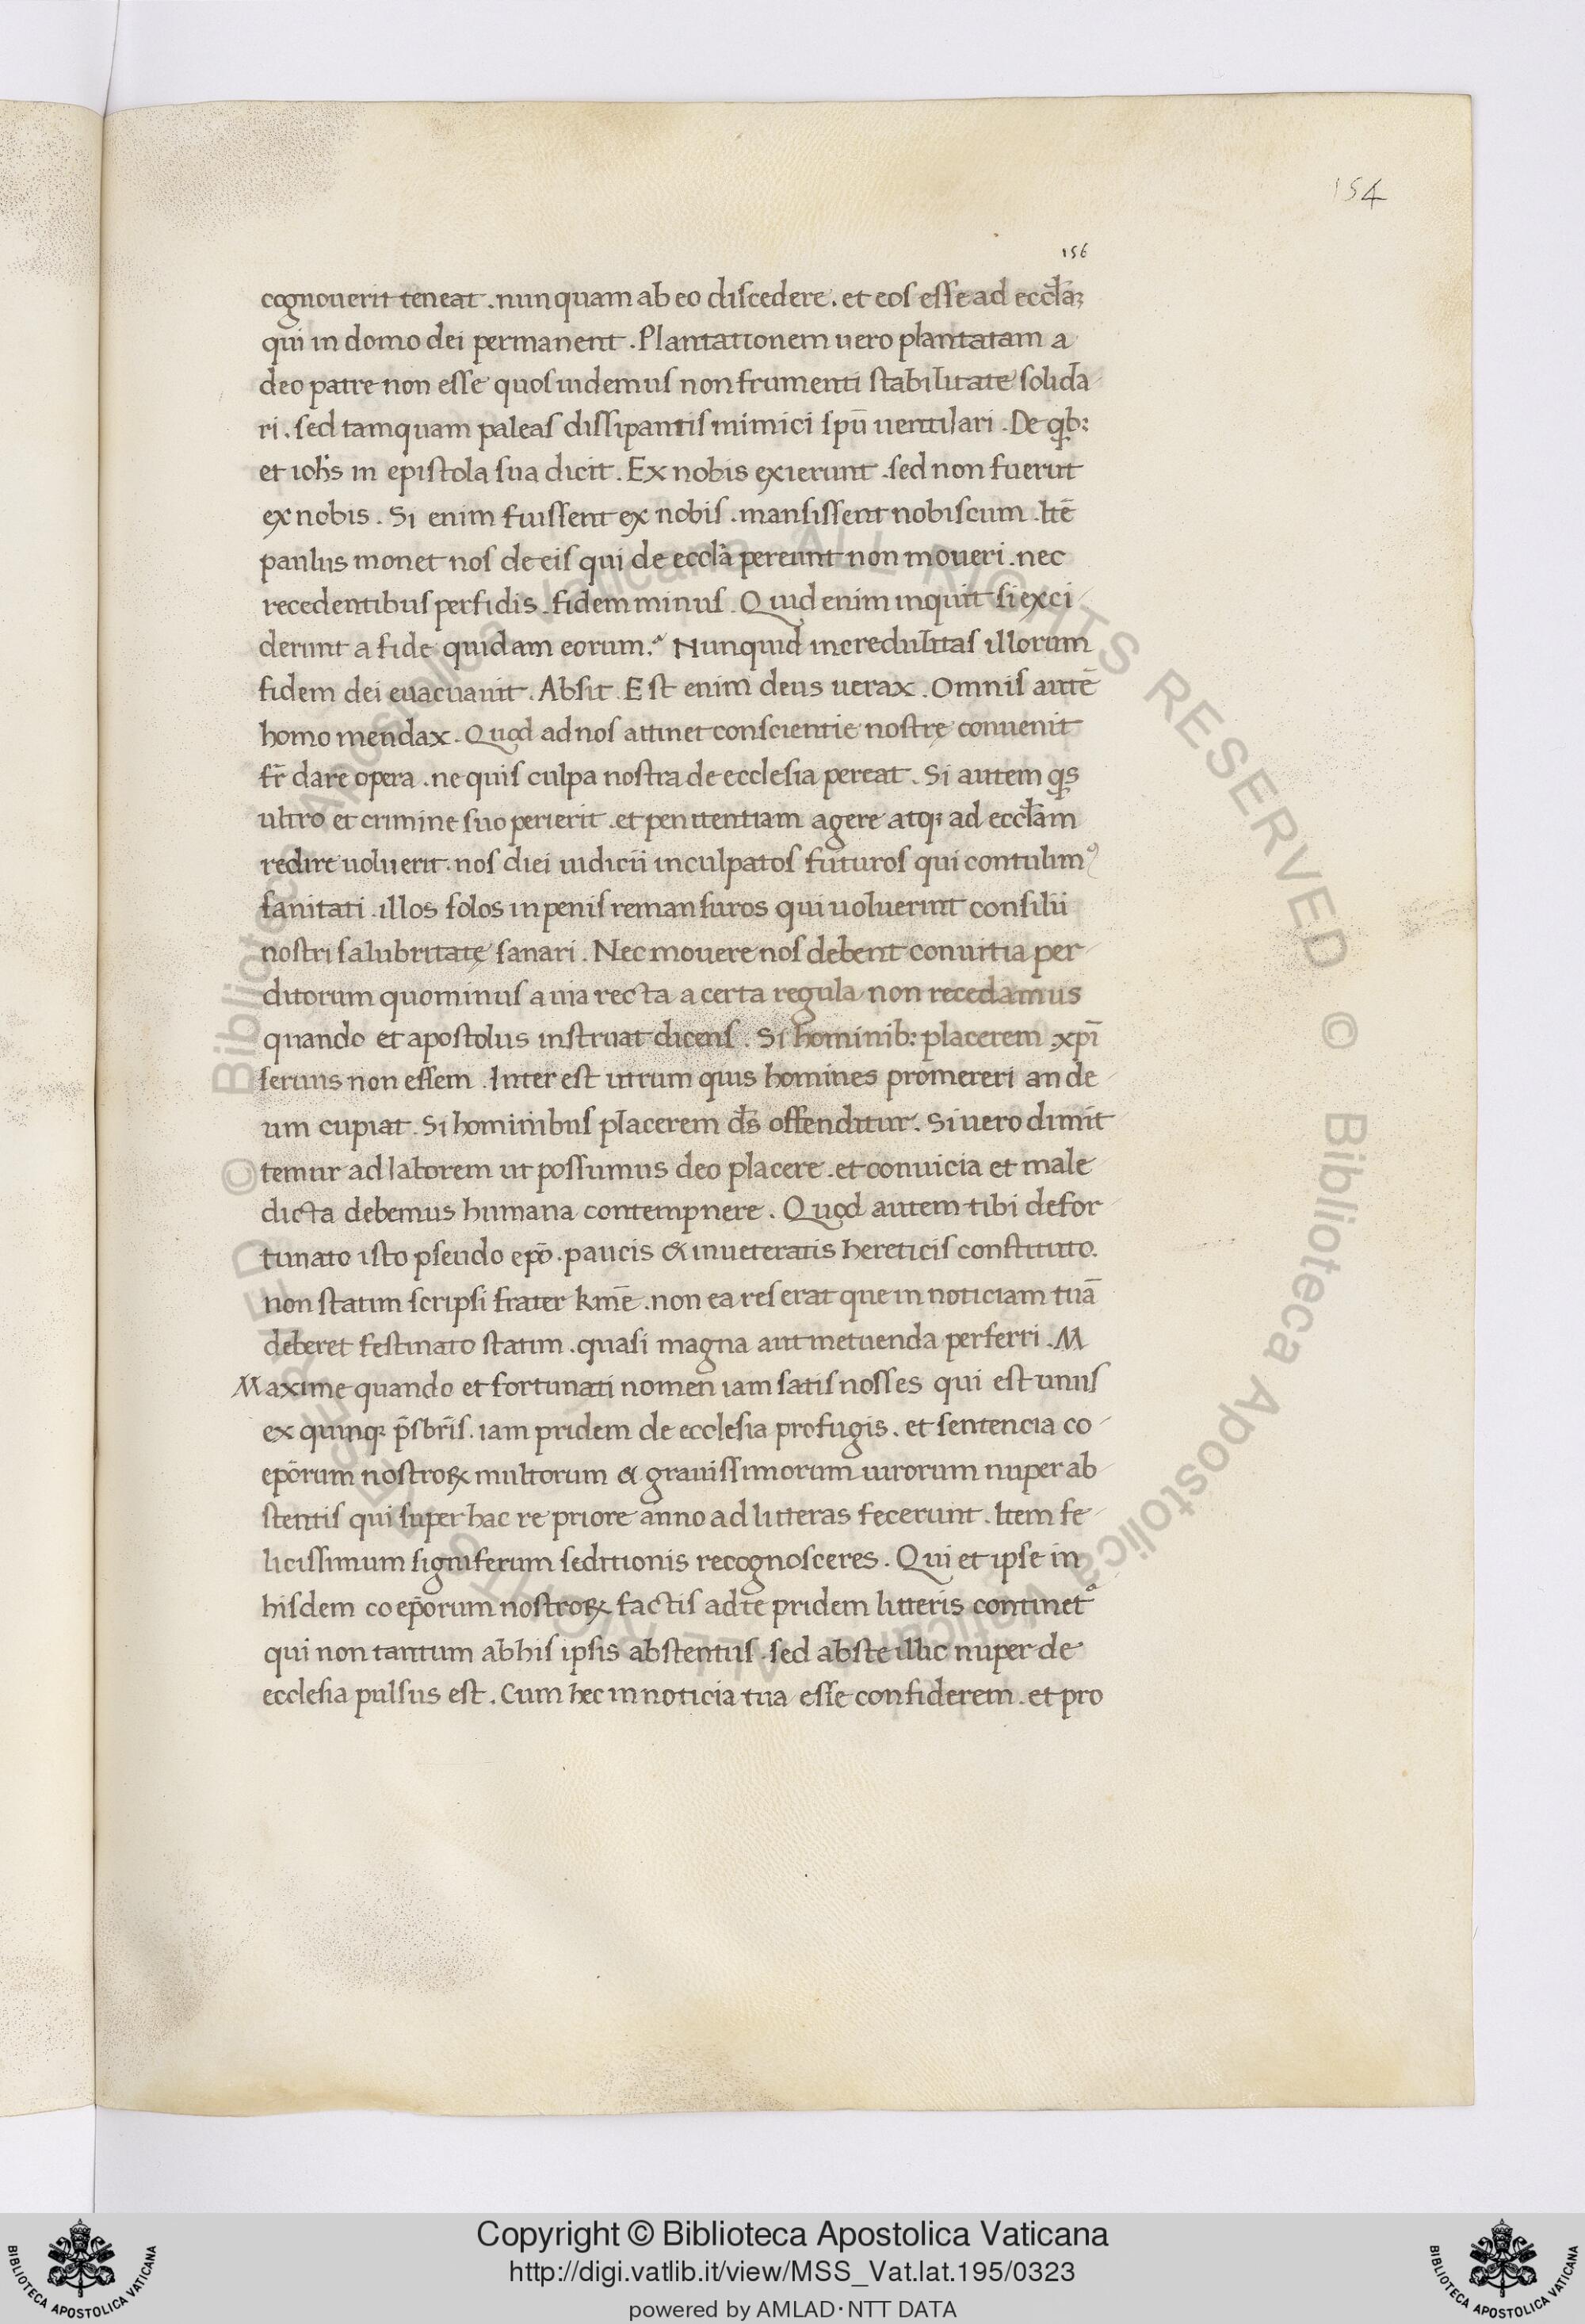 154
156
cognouerit teneat . nunquam ab eo discedere . et eos esse ad eccl̄aꝫ
qui in domo dei permanent . Plantationem uero plantatam a
deo patre non esse quos uidemus non frumenti stabilitate solida
ri . sed tamquam paleas dissipantis inimici spū uentilari . De qͥb:
et ioh̄s in epistola sua dicit . Ex nobis exierunt . sed non fuerūt
ex nobis . Si enim fuissent ex nobis . mansissent nobiscum . Itē
paulus monet nos de eis qui de eccl̄a pereunt non moueri . nec
recedentibus perfidis . fidem minus . Quid enim inquit si exci
derunt a fide quidam eorum? Nunquid incredulitas illorum
fidem dei euacuauit . Absit . Est enim deus uerax . Omnis autē
homo mendax . Quod ad nos attinet conscientie nostrę conuenit
fr̄ dare opera . ne quis culpa nostra de ecclesia pereat . Si autem qͥs
ultro et crimine suo perierit . et penitentiam agere atqꝫ ad eccl̄am
redire uoluerit . nos diei iudicii inculpatos futuros qui contulimꝰ
sanitati . illos solos in penis remansuros qui uoluerint consilii
nostri salubritatę sanari . Nec mouere nos debent conuitia per
ditorum quominus a uia recta a certa regula non recedamus
quando et apostolus instruat dicens . Si hominib: placerem xpī
seruus non essem . Inter est utrum quis homines promereri an de
um cupiat . Si hominibus placerem d̄s offenditur . Si uero dimit
temur ad laborem ut possumus deo placere . et conuicia et male
dicta debemus humana contempnere . Quod autem tibi de for
tunato isto pseudo epō . paucis & inueteratis hereticis constituto.
non statim scripsi frater km̄e . non ea res erat que in noticiam tuā
deberet festinato statim . quasi magna aut metuenda perferri . M
Maxime quando et fortunati nomen iam satis nosses qui est unus
ex quinqꝫ p̄sbr̄is . iam pridem de ecclesia profugis . et sentencia co
epōrum nostroꝝ multorum & grauissimorum uirorum nuper ab
stentis qui super hac re priore anno ad litteras fecerunt . Item fe
licissimum signiferum seditionis recognosceres . Qui et ipse in
hisdem coepōrum nostroꝝ factis ad te pridem litteris continet᷑
qui non tantum ab his ipsis abstentus . sed abste illic nuper de
ecclesia pulsus est . Cum hec in noticia tua esse confiderem . et pro
© Biblioteca Apostolica Vaticana ALL RIGHTS RESERVED © Biblioteca Apostolica Vaticana ALL RIGHTS RESERVED
Copyright © Biblioteca Apostolica Vaticana
http://digi.vatlib.it/view/MSS_Vat.lat.195/0323
powered by AMLAD·NTT DATA
BIBLIOTECA APOSTOLICA VATICANA
BIBLIOTECA APOSTOLICA VATICANA